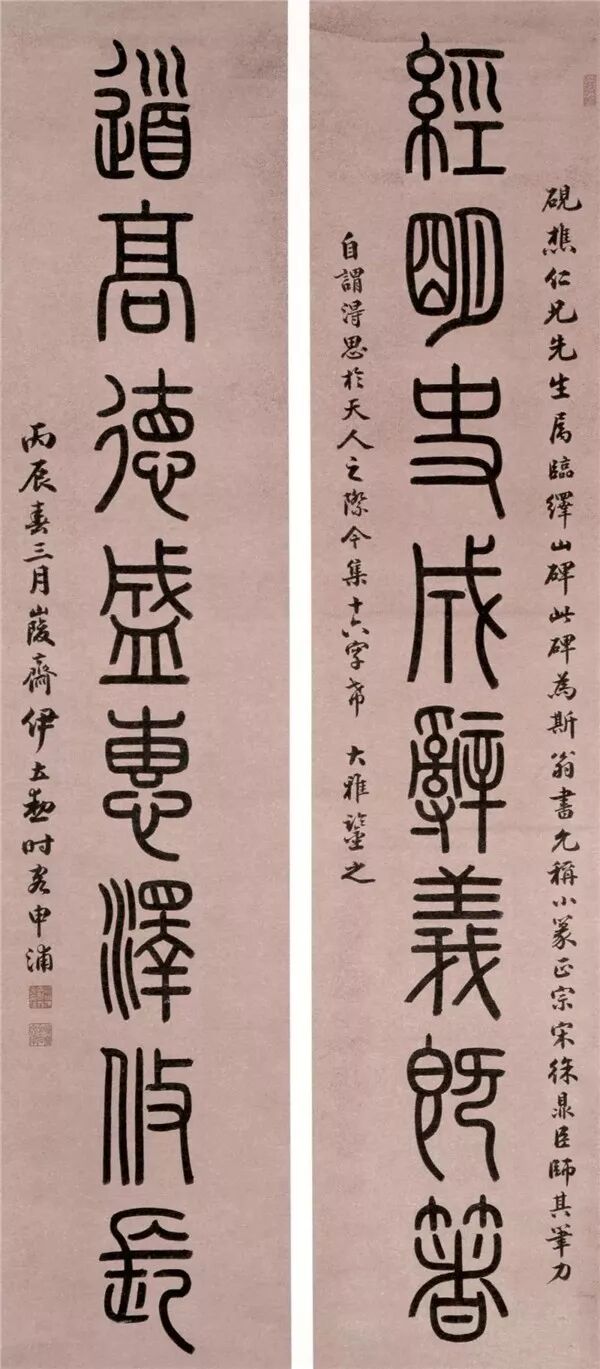 硯樵仁兄先生属臨繹山碑此碑為斯翁書允稱小篆正宗宋徐鼎臣師其筆力
經明史成辭義既箸
自謂得思於天人之際今集十六字希 大雅鑒之
道高德盛惠澤攸長
丙辰春三月峻齋伊立勳时客申浦